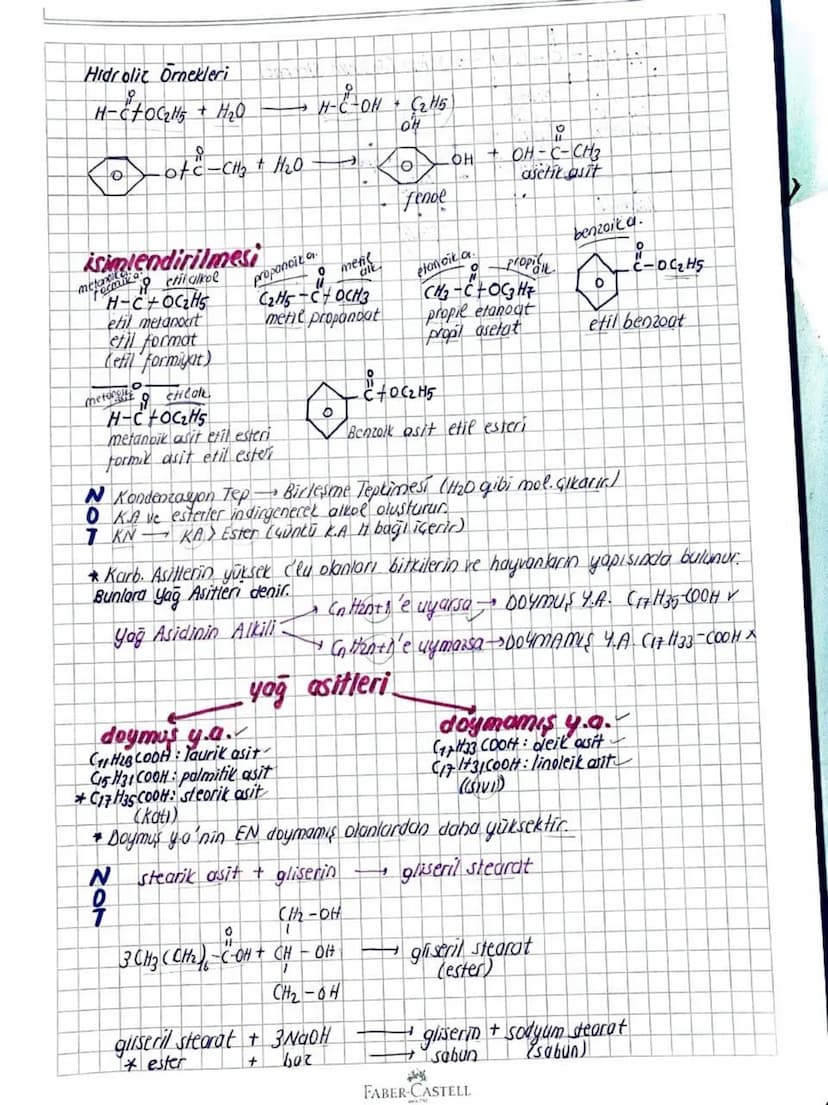 Hidroliz Örnekleri
O
H-C+OC2H5 + H2O → H-C-OH + C2H5
O
OH
O
O+C-CH3 + H2O → OH + OH-C-CH3
O
asetik asit
fenol
isimlendirilmesi
metanoik a. formik a. etil alkol
O
H-C+OC2H5
etil metanoat
etil format
(etil formiyat)
propanoik a. metil alk.
O
C2H5-C+OCH3
metil propanoat
etanoik a. propil alk.
O
CH3-C+OC3H7
propil etanoat
propil asetat
benzoik a.
O
C-OC2H5
etil benzoat
metanoik etil alk.
O
H-C+OC2H5
metanoik asit etil esteri
formik asit etil esteri
O
C+OC2H5
Benzoik asit etil esteri
NOT
Kondenzasyon Tep → Birleşme Tepkimesi (H2O gibi mol. çıkarır.)
KA ve esterler indirgenerek alkol oluşturur.
KN → KA > Ester (çünkü K.A H bağı içerir)
* Karb. Asitlerin yüksek C'lu olanları bitkilerin ve hayvanların yapısında bulunur.
Bunlara Yağ Asitleri denir.
Yağ Asidinin Alkili
→ CnH2n+1'e uyarsa → DOYMUŞ Y.A. C17H35-COOH ✓
→ CnH2n+1'e uymazsa → DOYMAMIŞ Y.A. C17H33-COOH x
yağ asitleri
doymuş y.a. ✓
C11H23COOH : laurik asit
C15H31COOH : palmitik asit
* C17H35COOH : stearik asit
(katı)
doymamış y.a. ✓
C17H33COOH : oleik asit
C17H31COOH : linoleik asit
(sıvı)
* Doymuş y.a'nin EN doymamış olanlardan daha yüksektir.
NOT
stearik asit + gliserin → gliseril stearat
CH2-OH
O
3CH3(CH2)16-C-OH + CH-OH → gliseril stearat
(ester)
CH2-OH
gliseril stearat + 3NaOH → gliserin + sodyum stearat
* ester + baz → sabun (sabun)
FABER-CASTELL